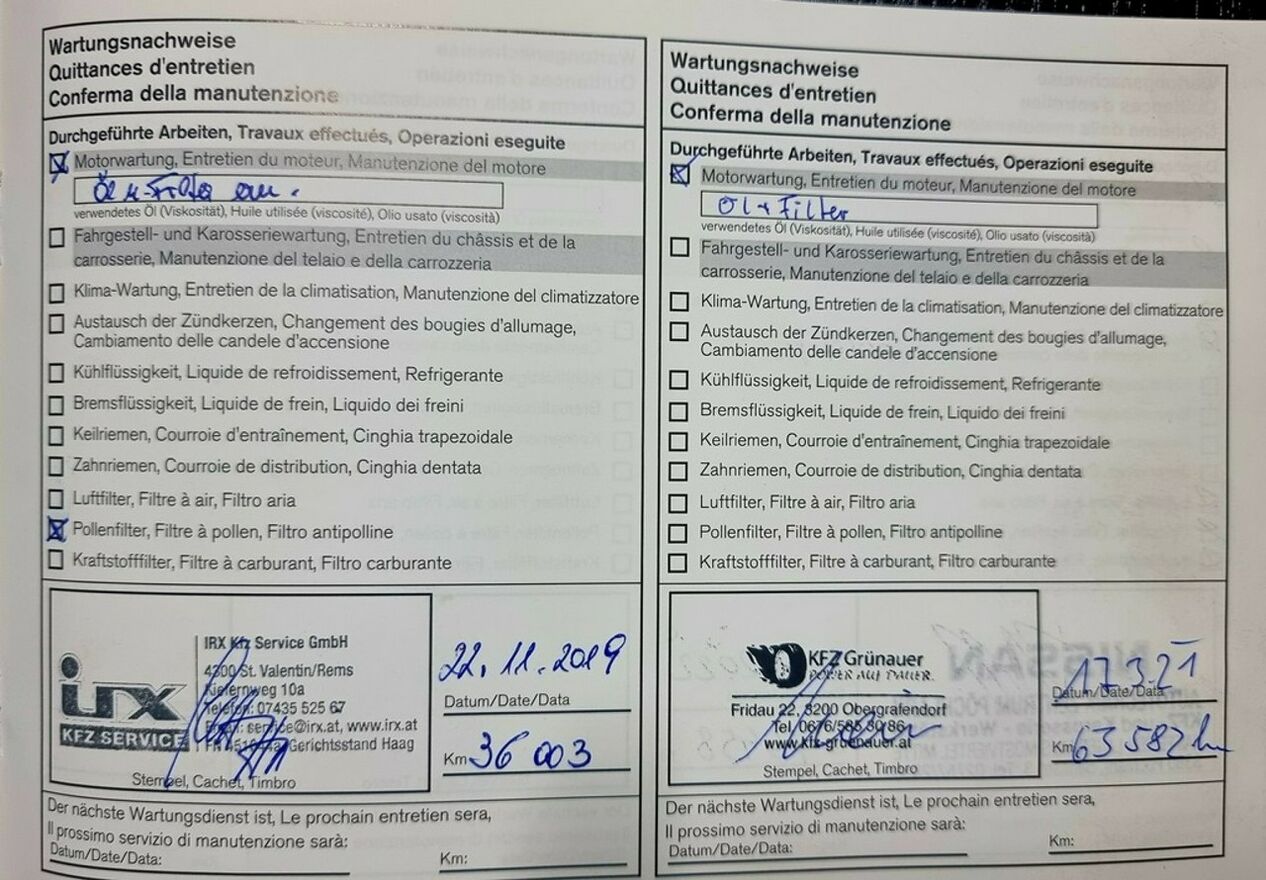 Wartungsnachweise
Quittances d'entretien
Conferma della manutenzione
Durchgeführte Arbeiten, Travaux effectués, Operazioni eseguite
Motorwartung, Entretien du moteur, Manutenzione del motore
Öl u-Filter
verwendetes Öl (Viskosität), Huile utilisée (viscosité), Olio usato (viscosità)
Fahrgestell- und Karosseriewartung, Entretien du châssis et de la
carrosserie, Manutenzione del telaio e della carrozzeria
Klima-Wartung, Entretien de la climatisation, Manutenzione del climatizzatore
Austausch der Zündkerzen, Changement des bougies d'allumage,
Cambiamento delle candele d'accensione
Kühlflüssigkeit, Liquide de refroidissement, Refrigerante
Bremsflüssigkeit, Liquide de frein, Liquido dei freini
Keilriemen, Courroie d'entraînement, Cinghia trapezoidale
Zahnriemen, Courroie de distribution, Cinghia dentata
Luftfilter, Filtre à air, Filtro aria
Pollenfilter, Filtre à pollen, Filtro antipolline
Kraftstofffilter, Filtre à carburant, Filtro carburante
irx
KFZ SERVICE
IRX Kfz Service GmbH
4300 St. Valentin/Rems
Kiefernweg 10a
Telefon: 07435 525 67
Email: service@irx.at, www.irx.at
Gerichtsstand Haag
Stempel, Cachet, Timbro
22.11.2019
Datum/Date/Data
Km 36 003
Der nächste Wartungsdienst ist, Le prochain entretien sera,
Il prossimo servizio di manutenzione sarà:
Datum/Date/Data:
Km:
Wartungsnachweise
Quittances d'entretien
Conferma della manutenzione
Durchgeführte Arbeiten, Travaux effectués, Operazioni eseguite
Motorwartung, Entretien du moteur, Manutenzione del motore
Öl + Filter
verwendetes Öl (Viskosität), Huile utilisée (viscosité), Olio usato (viscosità)
Fahrgestell- und Karosseriewartung, Entretien du châssis et de la
carrosserie, Manutenzione del telaio e della carrozzeria
Klima-Wartung, Entretien de la climatisation, Manutenzione del climatizzatore
Austausch der Zündkerzen, Changement des bougies d'allumage,
Cambiamento delle candele d'accensione
Kühlflüssigkeit, Liquide de refroidissement, Refrigerante
Bremsflüssigkeit, Liquide de frein, Liquido dei freini
Keilriemen, Courroie d'entraînement, Cinghia trapezoidale
Zahnriemen, Courroie de distribution, Cinghia dentata
Luftfilter, Filtre à air, Filtro aria
Pollenfilter, Filtre à pollen, Filtro antipolline
Kraftstofffilter, Filtre à carburant, Filtro carburante
KFZ Grünauer
POWER AUF DAUER.
Fridau 22, 3200 Obergrafendorf
www.kfz-gruenauer.at
Stempel, Cachet, Timbro
17.3.21
Datum/Date/Data
Km 63582 km
Der nächste Wartungsdienst ist, Le prochain entretien sera,
Il prossimo servizio di manutenzione sarà:
Datum/Date/Data:
Km: